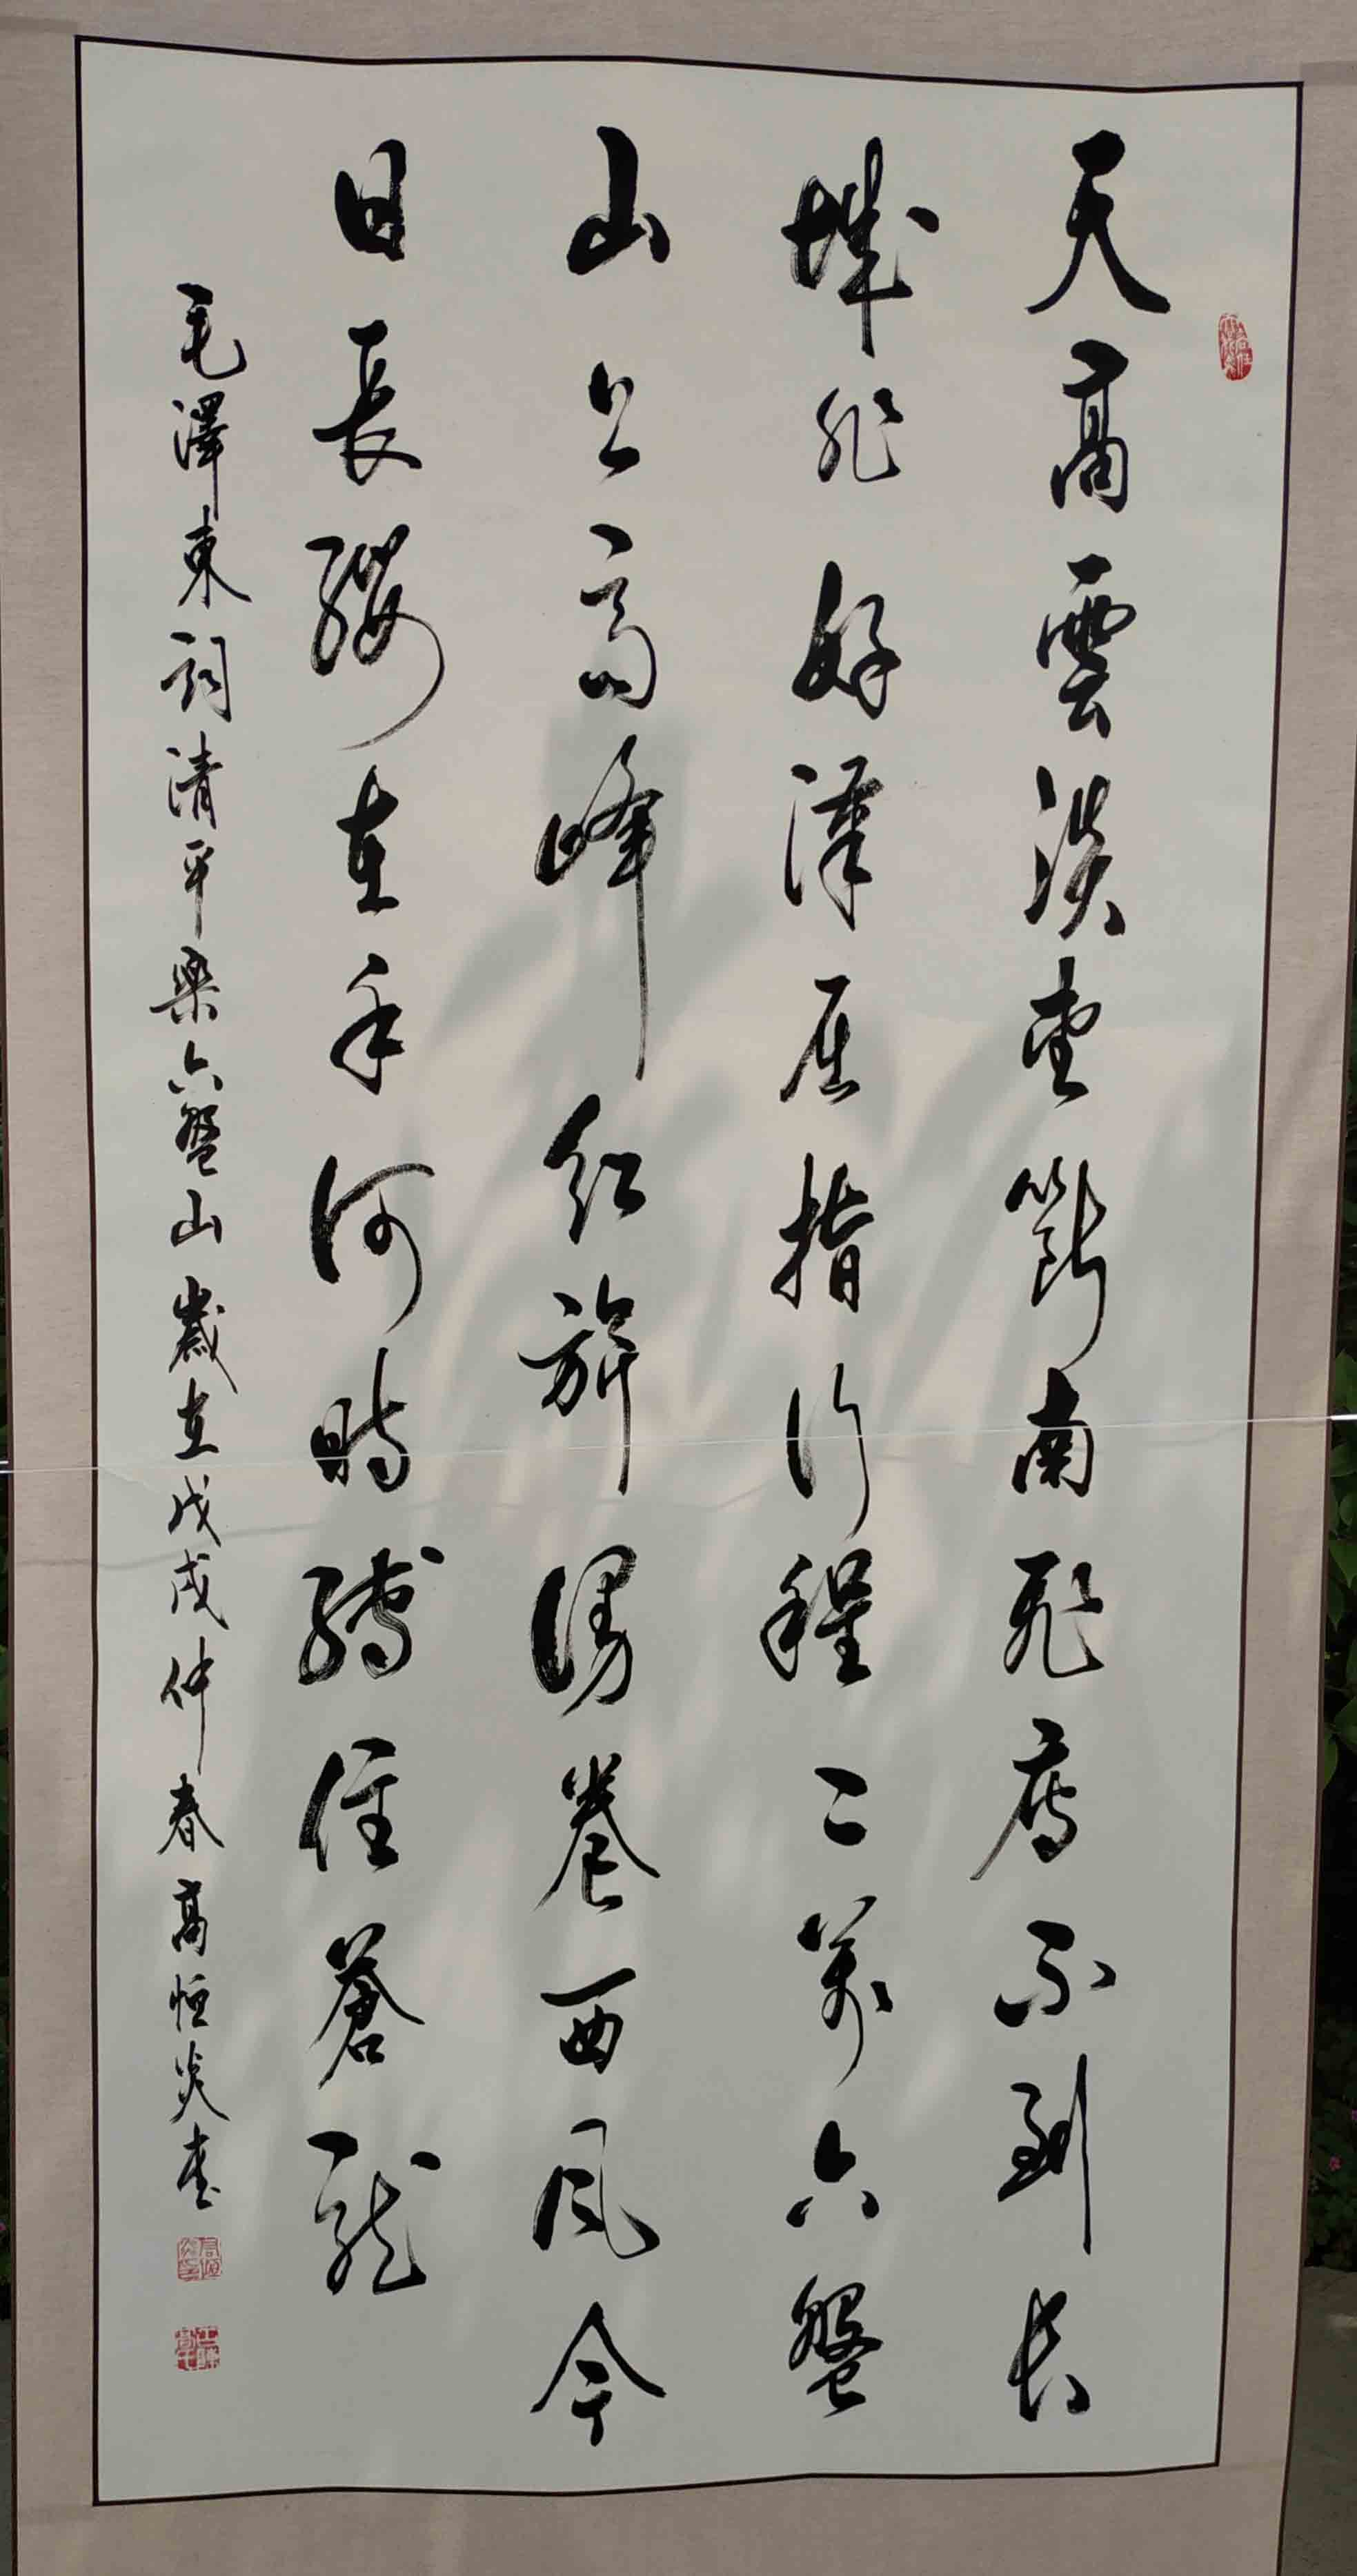 天高雲淡望斷南飛雁不到長
城非好漢屈指行程二萬六盤
山上高峰紅旗漫卷西風今
日長纓在手何時縛住蒼龍
毛澤東詞清平樂六盤山歲在戊戌仲春高恒炎書